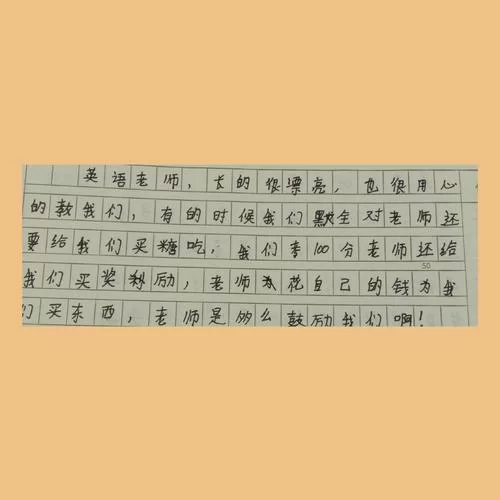 英语老师，长的很漂亮，也很用心
的教我们，有的时候我们默全对老师还
要给我们买糖吃，我们考100分老师还给
我们买奖励，老师花自己的钱为我
们买东西，老师是多么鼓励我们啊！
50